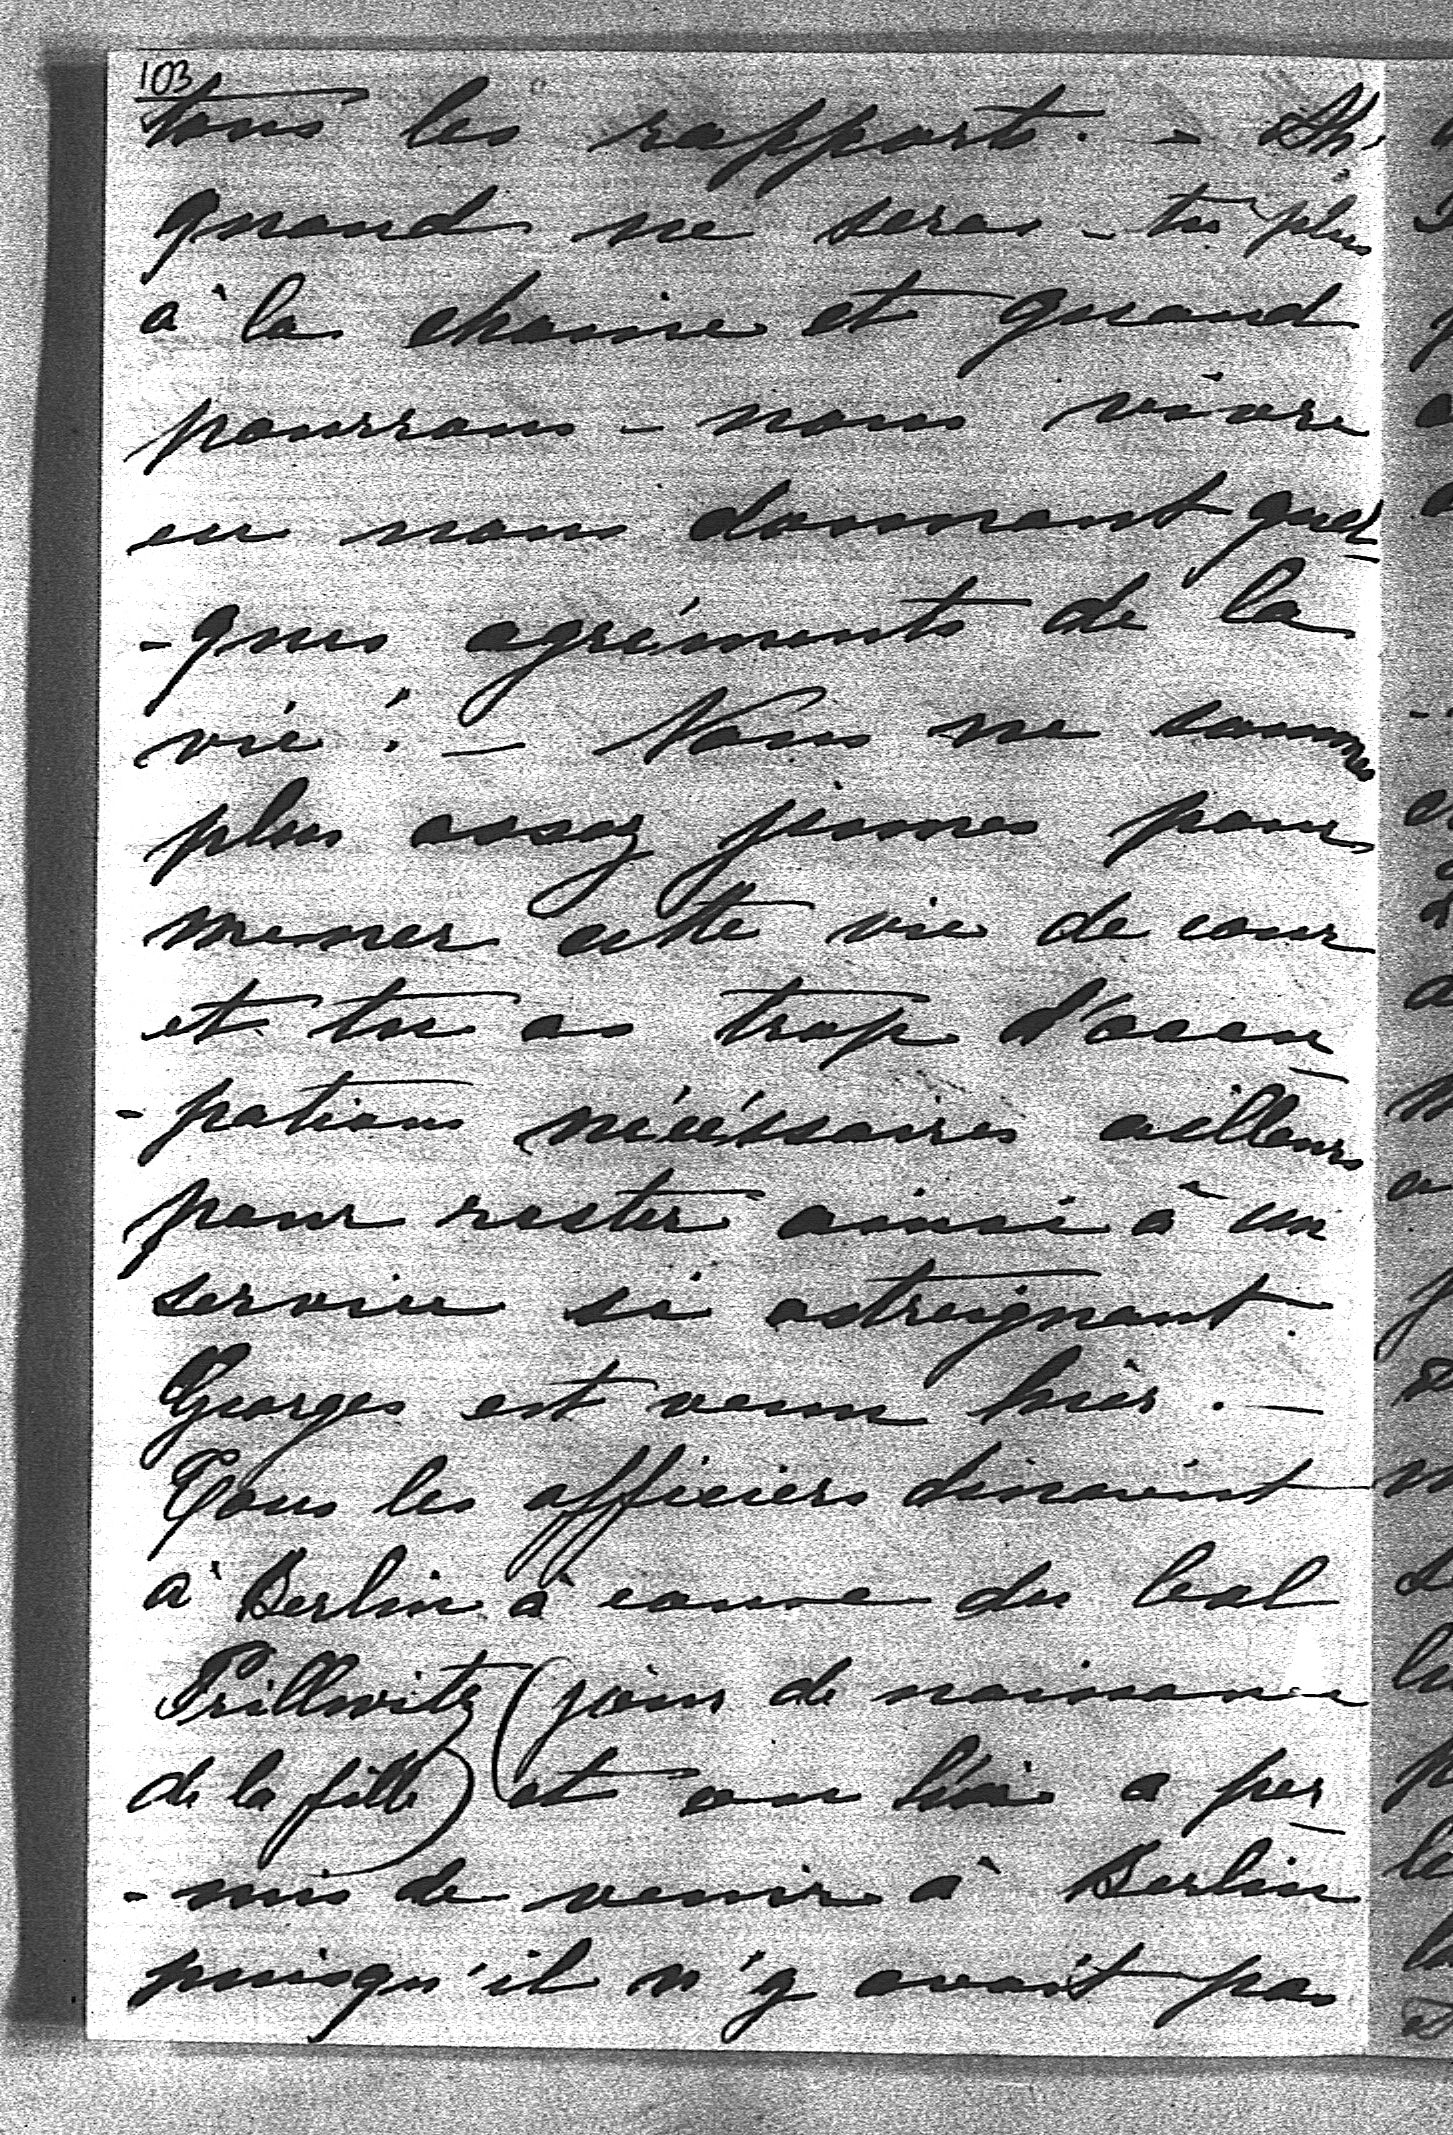 103
tous les rapports. – Ah!
quand ne seras-tu plus
à la chaine et quand
pourrons-nous vivre
en nous donnant quel-
-ques agréments de la
vie! – Nous ne sommes
plus assez jeunes pour
mener cette vie de cour
et tu as trop d'occu-
-pations nécéssaires ailleurs
pour rester ainsi à un
service si astreignant.
Georges est venu hier. –
Tous les officiers dinaient
à Berlin à cause du bal
Prillwitz (jour de naissance
de la fille) et on lui a per-
-mis de venir à Berlin
puisqu'il n'y avait pas